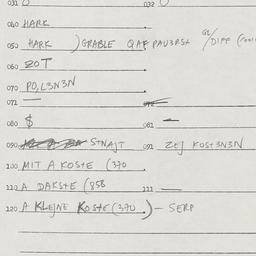 031
032
040 HARK
050 HARK ) GRABLE QAF PAU3RS+ 
060 ZOT
070 PO,L3N3N
071
080 $
081 —
090 STNAJT
091 ZEJ KOS+3N3N
100 MIT A KOS+E (370
110 A DAKS+E (858
111 —
120 A KLEJNE KOS+E (370 .) — SERP